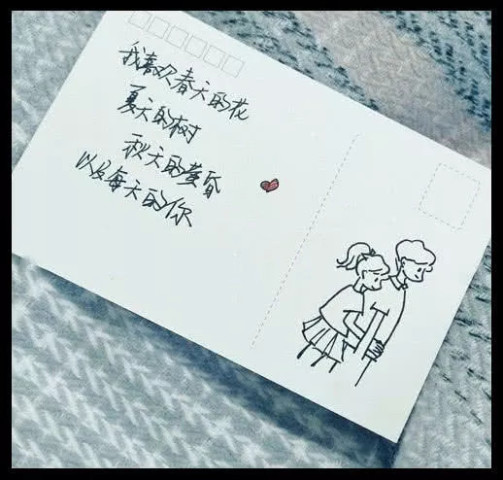 我喜欢春天的花
夏天的树
秋天的黄昏
以及每天的你